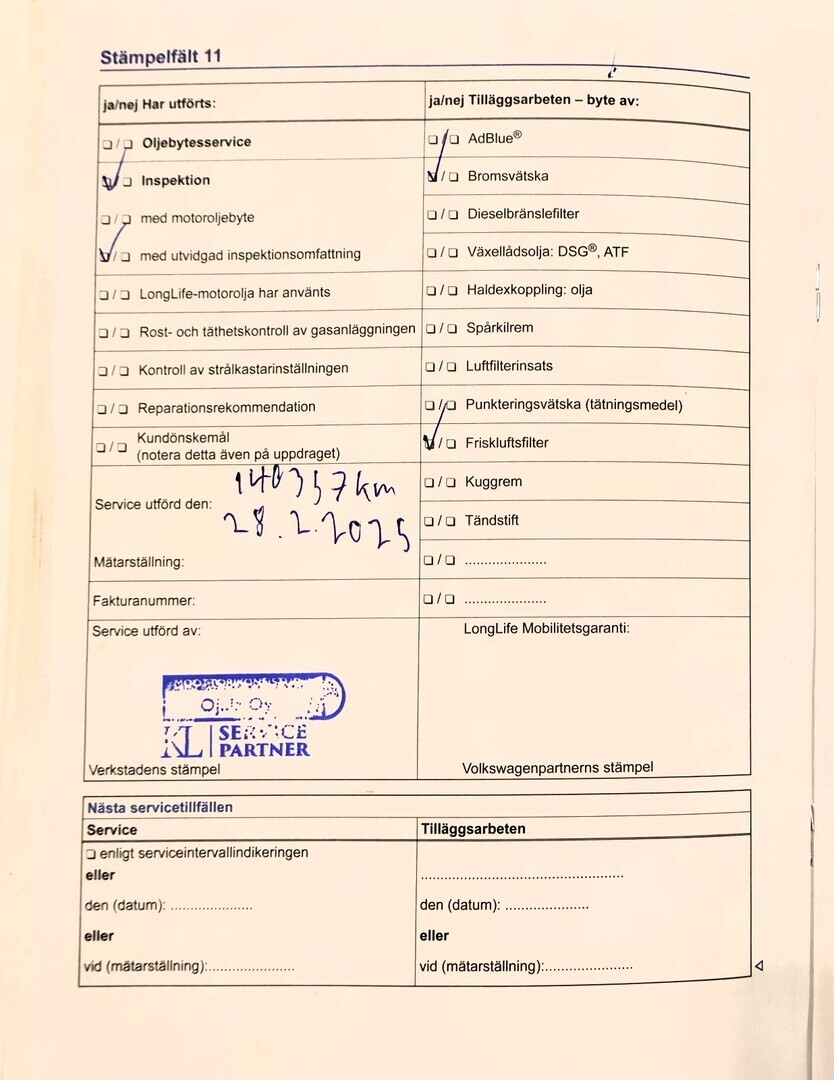 Stämpelfält 11
ja/nej Har utförts:
❏ / ❏ Oljebytesservice
❏ / ❏ Inspektion
❏ / ❏ med motoroljebyte
❏ / ❏ med utvidgad inspektionsomfattning
❏ / ❏ LongLife-motorolja har använts
❏ / ❏ Rost- och täthetskontroll av gasanläggningen
❏ / ❏ Kontroll av strålkastarinställningen
❏ / ❏ Reparationsrekommendation
❏ / ❏ Kundönskemål
(notera detta även på uppdraget)
140357 km
Service utförd den:
28.2.2025
Mätarställning:
Fakturanummer:
Service utförd av:
Oy
KL SERVICE
PARTNER
Verkstadens stämpel
ja/nej Tilläggsarbeten – byte av:
❏ / ❏ AdBlue®
❏ / ❏ Bromsvätska
❏ / ❏ Dieselbränslefilter
❏ / ❏ Växellådsolja: DSG®, ATF
❏ / ❏ Haldexkoppling: olja
❏ / ❏ Spårkilrem
❏ / ❏ Luftfilterinsats
❏ / ❏ Punkteringsvätska (tätningsmedel)
❏ / ❏ Friskluftsfilter
❏ / ❏ Kuggrem
❏ / ❏ Tändstift
❏ / ❏ .....................
❏ / ❏ .....................
LongLife Mobilitetsgaranti:
Volkswagenpartnerns stämpel
Nästa servicetillfällen
Service
❏ enligt serviceintervallindikeringen
eller
den (datum): .....................
eller
vid (mätarställning):......................
Tilläggsarbeten
.....................................................
den (datum): .....................
eller
vid (mätarställning):......................